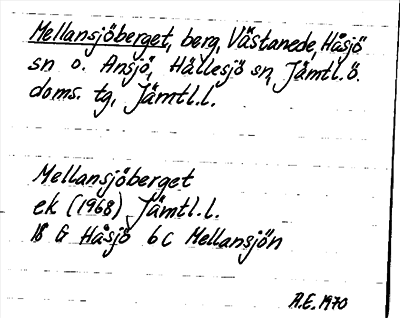 Mellansjöberget, berg, Västanede, Håsjö
sn o. Ansjö, Hällesjö sn, Jämtl. ö.
doms. tg, Jämtl.l.
Mellansjöberget
ek (1968) Jämtl.l.
18 G Håsjö 6c Mellansjön
A.E. 1970